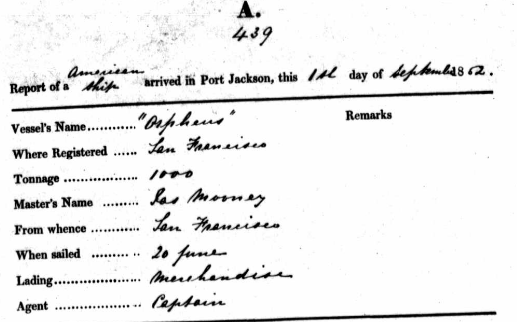 A.
439
Report of a American ship arrived in Port Jackson, this 1st day of September 1862.
Vessel's Name............ "Orpheus" Remarks
Where Registered ...... San Francisco
Tonnage .................. 1000
Master's Name ......... Jas Mooney
From whence ............ San Francisco
When sailed ......... .. 20 June
Lading..................... Merchandise
Agent .................. .. Captain